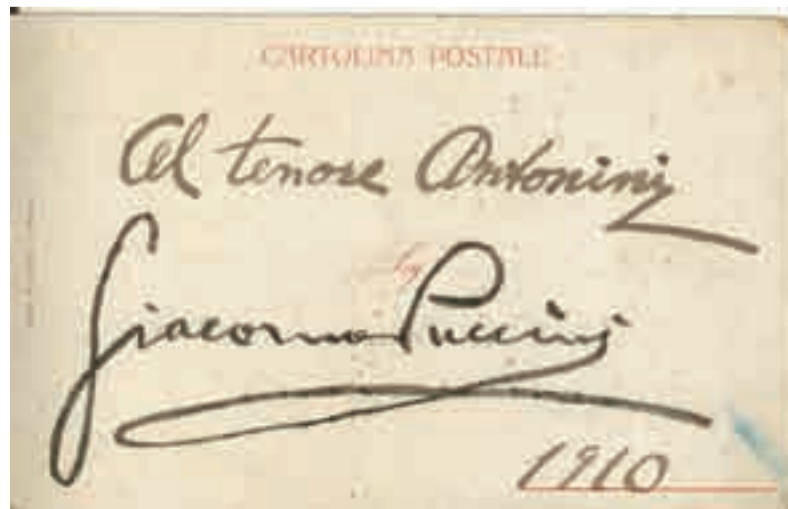 CARTOLINA POSTALE
Al tenore Antonini
Giacomo Puccini
1910